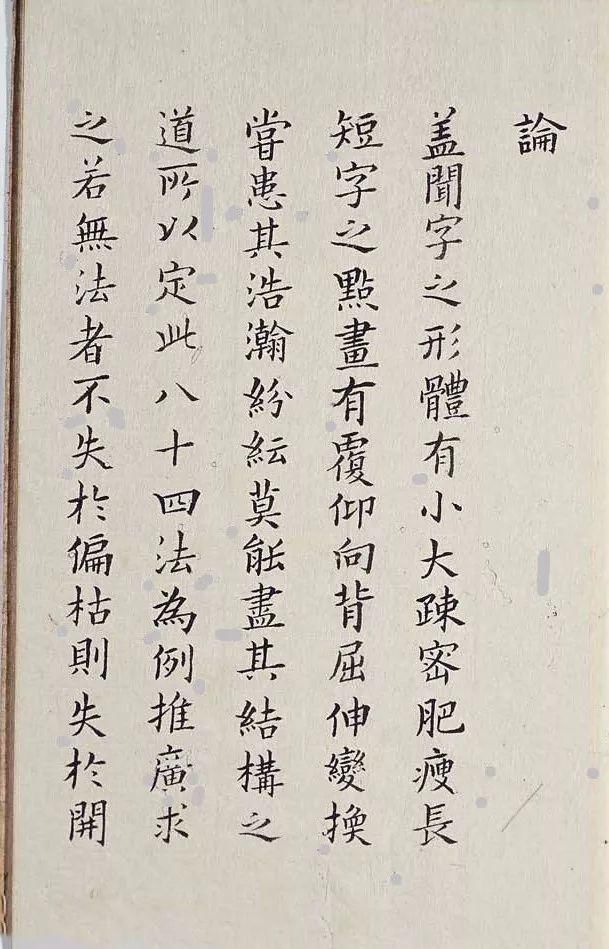 論
盖聞字之形體有小大疎密肥瘦長
短字之點畫有覆仰向背屈伸變換
嘗患其浩瀚紛紜莫能盡其結構之
道所以定此八十四法為例推廣求
之若無法者不失於偏枯則失於開